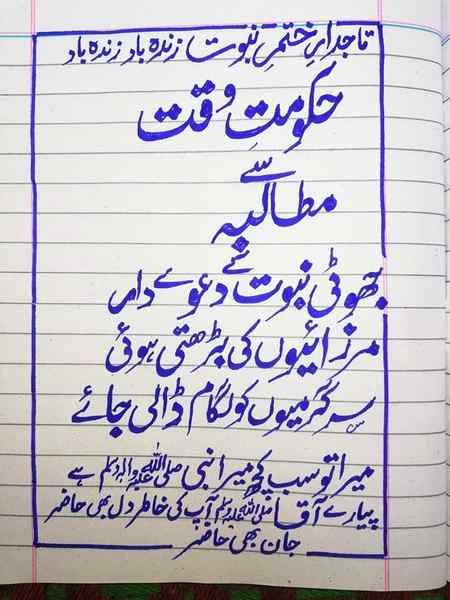 تاجدارِ ختمِ نبوت زندہ باد زندہ باد
حکومتِ وقت
سے
مطالبہ
جھوٹی نبوت کے دعوے دار
مرزائیوں کی بڑھتی ہوئی
سرگرمیوں کو لگام ڈالی جائے
میرا تو سب کچھ میرا نبی صلی اللہ علیہ والہ وسلم ہے
پیارے آقا صلی اللہ علیہ وسلم آپ کی خاطر دل بھی حاضر
جان بھی حاضر